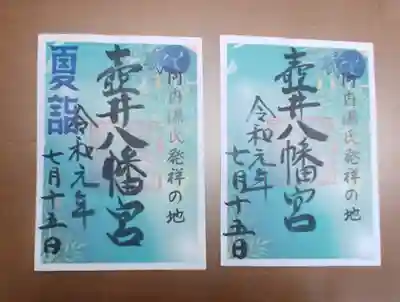 河内源氏発祥の地
壺井八幡宮
令和元年
七月十五日
夏詣
河内源氏発祥の地
壺井八幡宮
令和元年
七月十五日